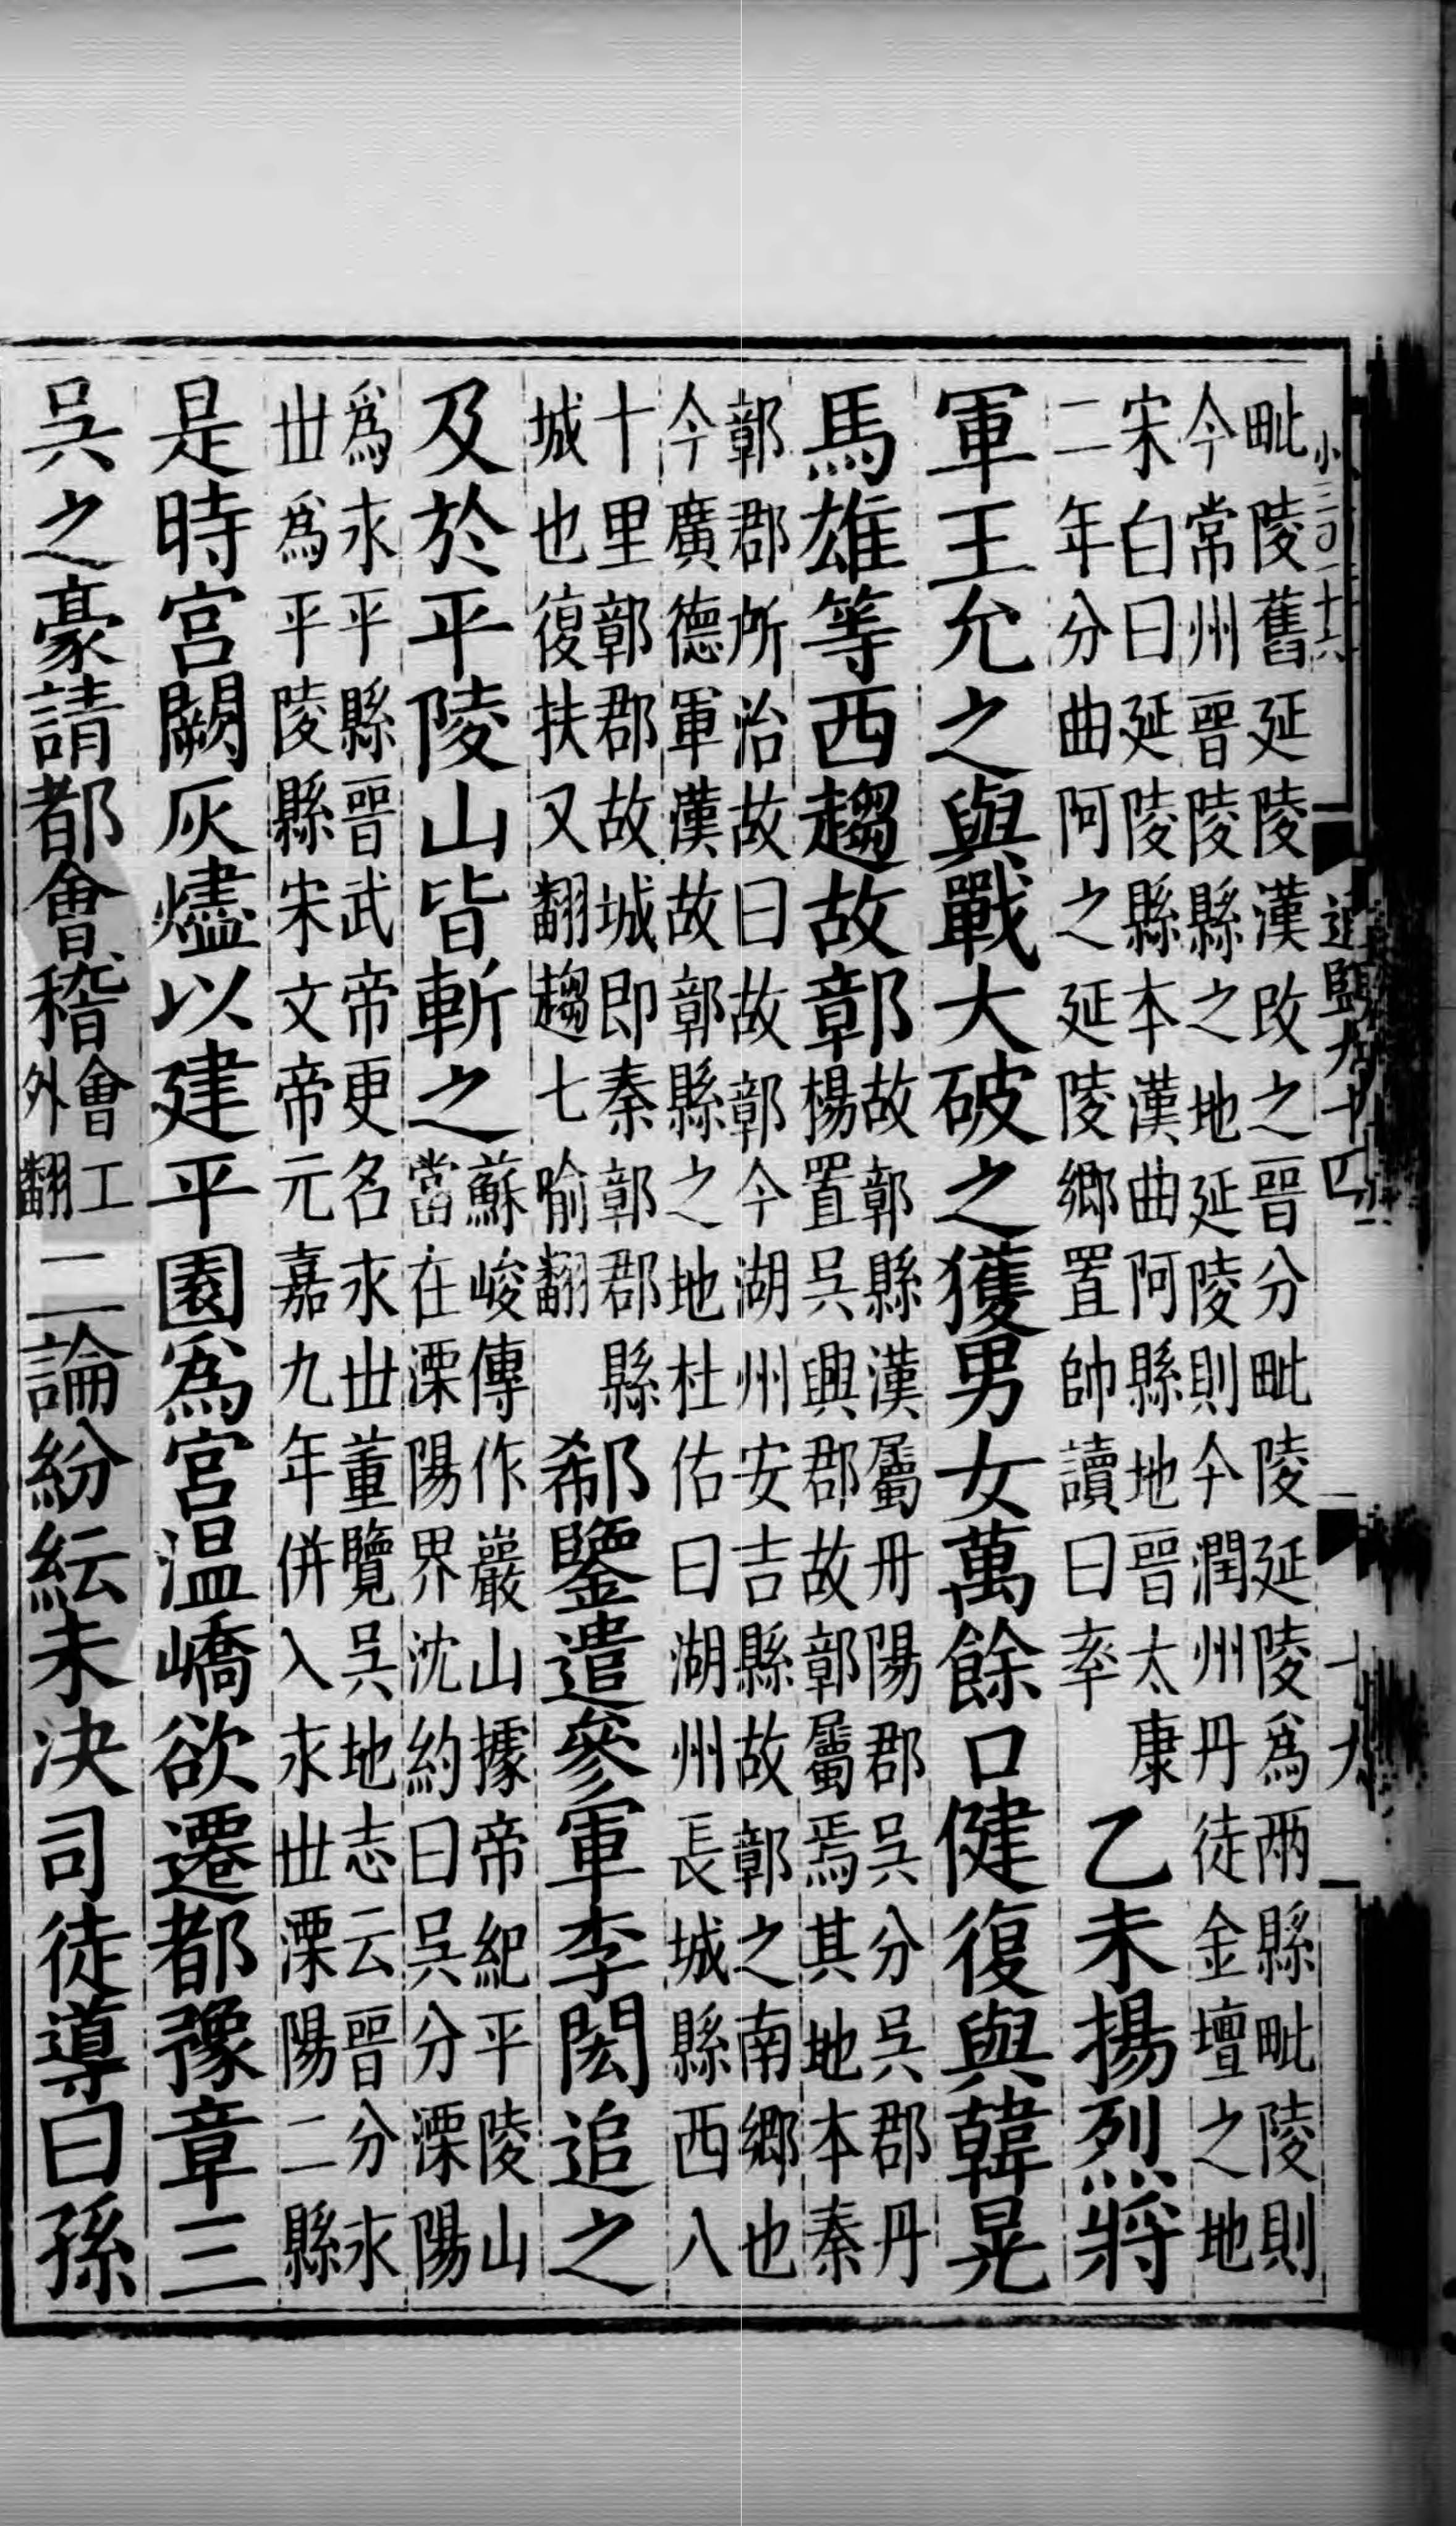 毗陵舊延陵漢改之晉分毗陵延陵爲兩縣毗陵則
今常州晉陵縣之地延陵則今潤州丹徒金壇之地
宋白曰延陵縣本漢曲阿縣地晉太康
二年分曲阿之延陵鄉置帥讀曰率
乙未揚烈將
軍王允之與戰大破之獲男女萬餘口健復與韓晃
馬雄等西趨故鄣
故鄣縣漢屬丹陽郡吳分吳郡丹
楊置吳興郡故鄣屬焉其地本秦
鄣郡所治故曰故鄣今湖州安吉縣故鄣之南鄉也
今廣德軍漢故鄣縣之地杜佑曰湖州長城縣西八
十里鄣郡故城即秦鄣郡縣
城也復扶又翻趨七喻翻
郗鑒遣參軍李閎追之
及於平陵山皆斬之
蘇峻傳作巖山據帝紀平陵山
當在溧陽界沈約曰吳分溧陽
爲永平縣晉武帝更名永世董覽吳地志云晉分永
世爲平陵縣宋文帝元嘉九年併入永世溧陽二縣
是時宮闕灰燼以建平園爲宮温嶠欲遷都豫章三
吳之豪請都會稽
會工
外翻
二論紛紜未決司徒導曰孫
通鑑九十四
十九